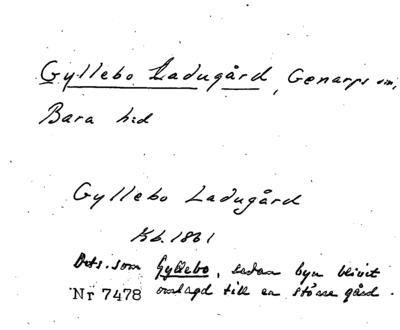 Gyllebo Ladugård, Genarps sn,
Bara hd
Gyllebo Ladugård
Kb. 1861
Dets. som Gyllebo, sedan byn blivit
Nr 7478 omlagd till en större gård.